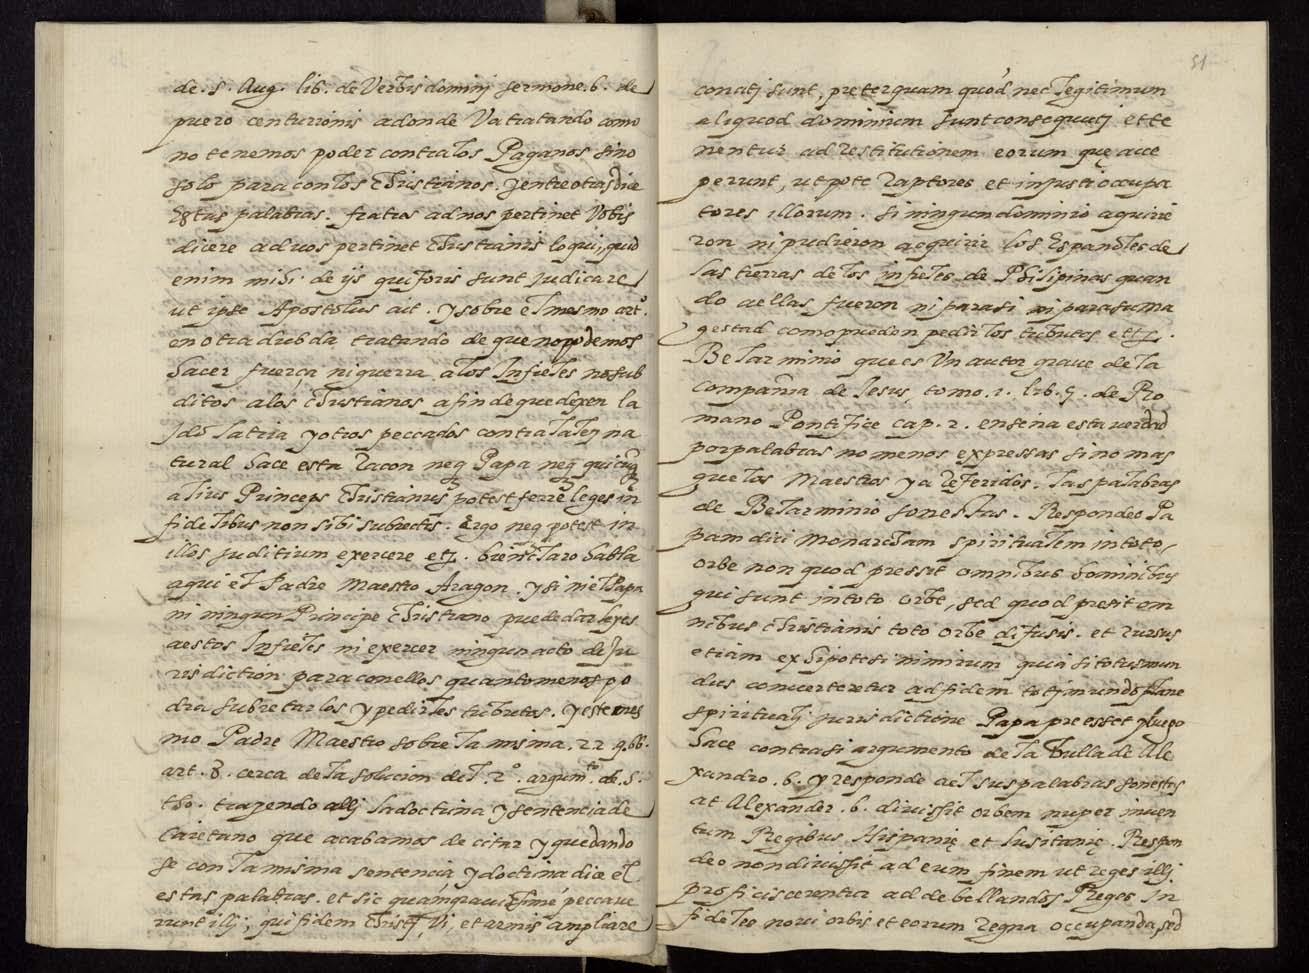 de. S. Aug. lib. de Verbis dominj sermone. 6. de
puero centurionis adonde Va tratando como
no tenemos poder contra los Paganos sino
solo para con los christianos. y entre otras dice
estas palabras. fratres ad nos pertinet Vobis
dicere ad uos pertinet christianis loqui, quid
enim mihi de ijs qui foris sunt judicare
ut ipse Apostolus ait. y sobre el mesmo artº.
en otra dubda tratando de que no podemos
hacer fuerça ni guerra a los Infieles no sub
ditos a los christianos a fin de que dexen la
jdolatria y otros peccados contra la ley na
tural hace esta racon neq Papa neq quicuq
alius Princeps christianus potest ferre leges in
fidelibus non sibi subiectis. Ergo neq potest in
illos juditium exercere etz. bien claro habla
aqui el Padre Maestro Aragon. y si ni el Papa
ni ningun Principe christiano puede dar leyes
a estos Infieles ni exercer ningun acto de Ju
risdiction para con ellos quanto menos po
dra subietarlos y pedirles tributos. y este mes
mo Padre Maestro sobre la misma. 22. q. 66.
art. 8. cerca de la solucion del. 2º. argumto. de. S.
tho. trayendo allj la doctrina y sentencia de
Caietano que acabamos de citar y quedando
se con la misma sentencia y doctrina dice el
estas palabras. et sic quam grauissime peccaue
runt illj, qui fidem christi, Vi, et armis ampliare
51
conatj sunt, preterquam quod nec legitimum
aliquod dominium sunt consequutj et te
nentur ad restitutionem eorum quę acce
perunt, ut pote raptores et injusti occupa
tores illorum. si ningun dominio aquirie
ron ni pudieron acquirir los Españoles de
las tierras de los infieles de Philipinas quan
do a ellas fueron ni para si ni para su ma
gestad como pueden pedirlos tributos etz.
Belarminio que es Vn autor graue de la
compañia de Jesus, tomo. 1. lib. 5. de Ro
mano Pontifice cap. 2. enseña esta verdad
por palabras no menos expressas sino mas
que los Maestros ya referidos. las palabras
de Belarminio son estas. Respondeo Pa
pam dici Monarcham spiritualem in toto
orbe non quod pressit omnibus hominibus
qui sunt in toto orbe, sed quod presit om
nibus christianis toto orbe difusis. et rursus
etiam ex hipotesi nimirum quia si totus mun
dus conuerteretur ad fidem totj mundo plane
spiritualj jurisdictione Papa preesset y luego
hace contra si argumento de la bulla de Ale
xandro. 6. y responde a el sus palabras son estas
at Alexander. 6. diuissit orbem nuper inuen
tum Regibus Hispanię et lusitanię. Respon
deo non diuissit ad eum finem ut reges illj
proficiscerentur ad debellandos Reges In
fideles noui orbis et eorum regna occupanda, sed